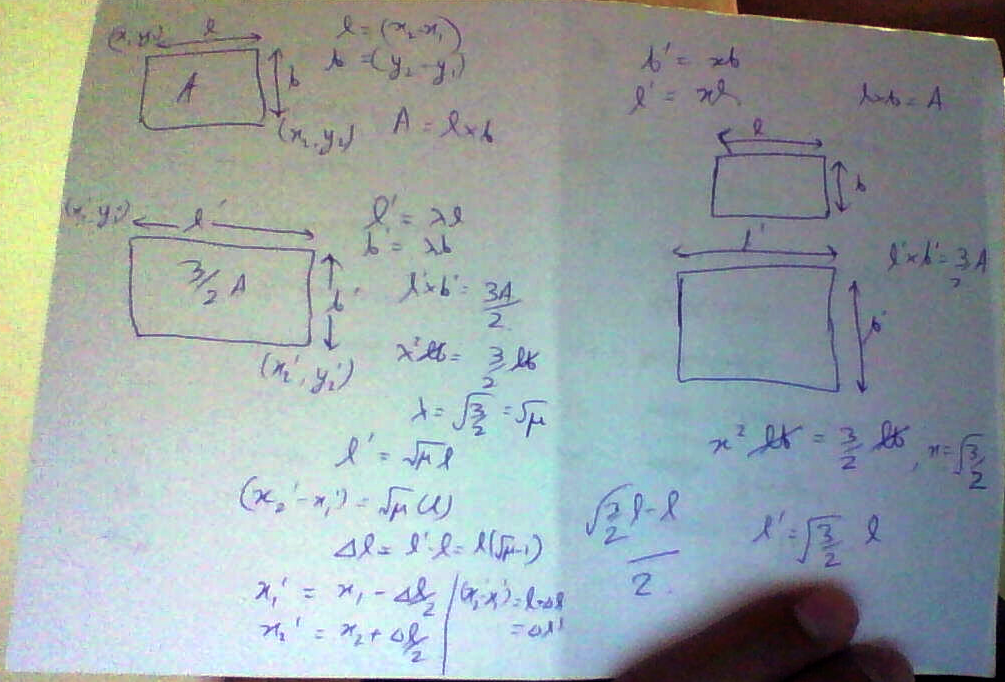 (x₁, y₁) l
A
b
(x₂, y₂)
l = (x₂-x₁)
b = (y₂-y₁)
A = l×b
(x₁' y₁') l'
3/2 A
b'
(x₂', y₂')
l' = λl
b' = λb
l'×b' = 3A/2
λ²lb = 3/2 lb
λ = √3/2 = √μ
l' = √μ l
(x₂'-x₁') = √μ(l)
Δl = l'-l = l(√μ-1)
x₁' = x₁ - Δl/2
x₂' = x₂ + Δl/2
b' = xb
l' = xl
l×b = A
l
b
l'
l'×b' = 3/2 A
b'
x² lb = 3/2 lb, x = √3/2
√3/2 l-l
2
l' = √3/2 l